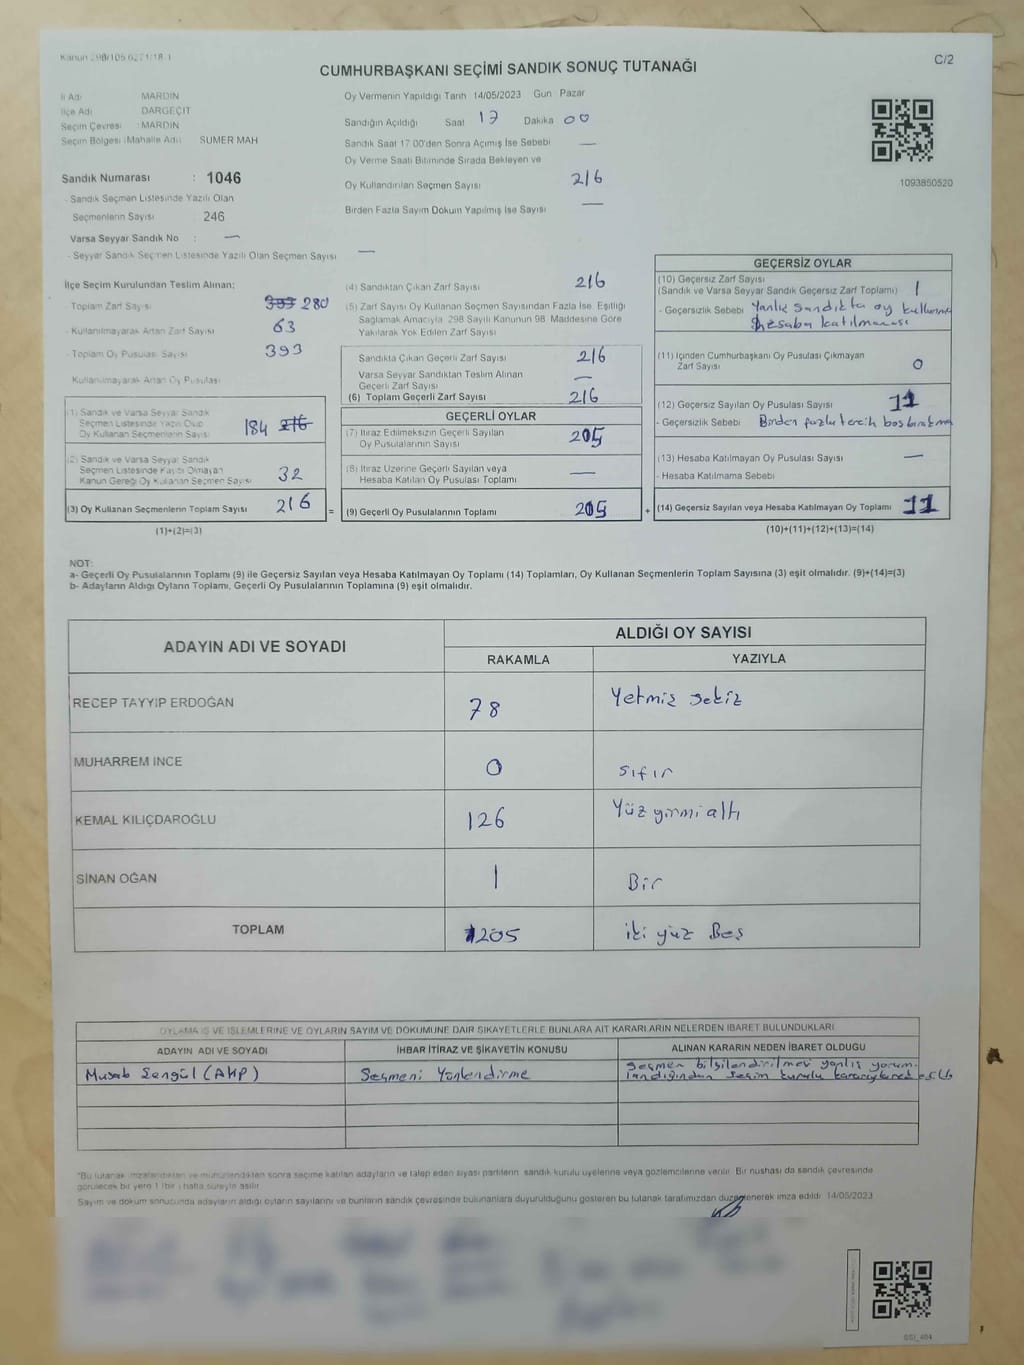 Kanun 298/105 6271/18 1
C/2
CUMHURBAŞKANI SEÇİMİ SANDIK SONUÇ TUTANAĞI
İl Adı MARDIN
İlçe Adı DARGEÇİT
Seçim Çevresi : MARDIN
Seçim Bölgesi (Mahalle Adı) SUMER MAH
Sandık Numarası : 1046
- Sandık Seçmen Listesinde Yazılı Olan
Seçmenlerin Sayısı 246
Varsa Seyyar Sandık No : —
- Seyyar Sandık Seçmen Listesinde Yazılı Olan Seçmen Sayısı —
Oy Vermenin Yapıldığı Tarih 14/05/2023 Gün Pazar
Sandığın Açıldığı Saat 17 Dakika 00
Sandık Saat 17 00'den Sonra Açımış İse Sebebi —
Oy Verme Saati Bitiminde Sırada Bekleyen ve
Oy Kullandırılan Seçmen Sayısı 216
Birden Fazla Sayım Döküm Yapılmış İse Sayısı —
1093850520
İlçe Seçim Kurulundan Teslim Alınan;
Toplam Zarf Sayısı 280
- Kullanılmayarak Artan Zarf Sayısı 63
- Toplam Oy Pusulası Sayısı 393
Kullanılmayarak Artan Oy Pusulası
(1) Sandık ve Varsa Seyyar Sandık
Seçmen Listesinde Yazılı Olup
Oy Kullanan Seçmenlerin Sayısı 184 216
(2) Sandık ve Varsa Seyyar Sandık
Seçmen Listesinde Kaydı Olmayan
Kanun Gereği Oy Kullanan Seçmen Sayısı 32
(3) Oy Kullanan Seçmenlerin Toplam Sayısı 216 =
(1)+(2)=(3)
(4) Sandıktan Çıkan Zarf Sayısı 216
(5) Zarf Sayısı Oy Kullanan Seçmen Sayısından Fazla İse, Eşitliği
Sağlamak Amacıyla, 298 Sayılı Kanunun 98. Maddesine Göre
Yakılarak Yok Edilen Zarf Sayısı
Sandıkta Çıkan Geçerli Zarf Sayısı 216
Varsa Seyyar Sandıktan Teslim Alınan
Geçerli Zarf Sayısı —
(6) Toplam Geçerli Zarf Sayısı 216
GEÇERLİ OYLAR
(7) İtiraz Edilmeksizin Geçerli Sayılan
Oy Pusulalarının Sayısı 205
(8) İtiraz Üzerine Geçerli Sayılan veya
Hesaba Katılan Oy Pusulası Toplamı —
(9) Geçerli Oy Pusulalarının Toplamı 205 +
GEÇERSİZ OYLAR
(10) Geçersiz Zarf Sayısı
(Sandık ve Varsa Seyyar Sandık Geçersiz Zarf Toplamı) 1
- Geçersizlik Sebebi Yanlış Sandıkta oy
hesaba katılmaması
(11) İçinden Cumhurbaşkanı Oy Pusulası Çıkmayan
Zarf Sayısı 0
(12) Geçersiz Sayılan Oy Pusulası Sayısı 11
- Geçersizlik Sebebi Birden fazla tercih boş bırakma
(13) Hesaba Katılmayan Oy Pusulası Sayısı —
- Hesaba Katılmama Sebebi
(14) Geçersiz Sayılan veya Hesaba Katılmayan Oy Toplamı 11
(10)+(11)+(12)+(13)=(14)
NOT:
a- Geçerli Oy Pusulalarının Toplamı (9) ile Geçersiz Sayılan veya Hesaba Katılmayan Oy Toplamı (14) Toplamları, Oy Kullanan Seçmenlerin Toplam Sayısına (3) eşit olmalıdır. (9)+(14)=(3)
b- Adayların Aldığı Oyların Toplamı, Geçerli Oy Pusulalarının Toplamına (9) eşit olmalıdır.
ADAYIN ADI VE SOYADI
ALDIĞI OY SAYISI
RAKAMLA YAZIYLA
RECEP TAYYIP ERDOĞAN 78 Yetmiş sekiz
MUHARREM INCE 0 sıfır
KEMAL KILIÇDAROĞLU 126 Yüz yirmi altı
SİNAN OĞAN 1 Bir
TOPLAM 205 iki yüz Beş
OYLAMA İŞ VE İŞLEMLERİNE VE OYLARIN SAYIM VE DÖKÜMÜNE DAİR ŞİKAYETLERLE BUNLARA AİT KARARLARIN NELERDEN İBARET BULUNDUKLARI
ADAYIN ADI VE SOYADI İHBAR İTİRAZ VE ŞİKAYETİN KONUSU ALINAN KARARIN NEDEN İBARET OLDUĞU
Musab Şengül (AKP) Seçmeni Yönlendirme Seçmen bilgilendirilmesi yanlış yorum-
landığından seçim kurulu
*Bu tutanak imzalandıktan ve mühürlendikten sonra seçime katılan adayların ve talep eden siyasi partilerin sandık kurulu üyelerine veya gözlemcilerine verilir. Bir nüshası da sandık çevresinde
görülecek bir yere 1 (bir) hafta süreyle asılır
Sayım ve döküm sonucunda adayların aldığı oyların sayılarını ve bunların sandık çevresinde bulunanlara duyurulduğunu gösteren bu tutanak tarafımızdan düzenlenerek imza edildi 14/05/2023